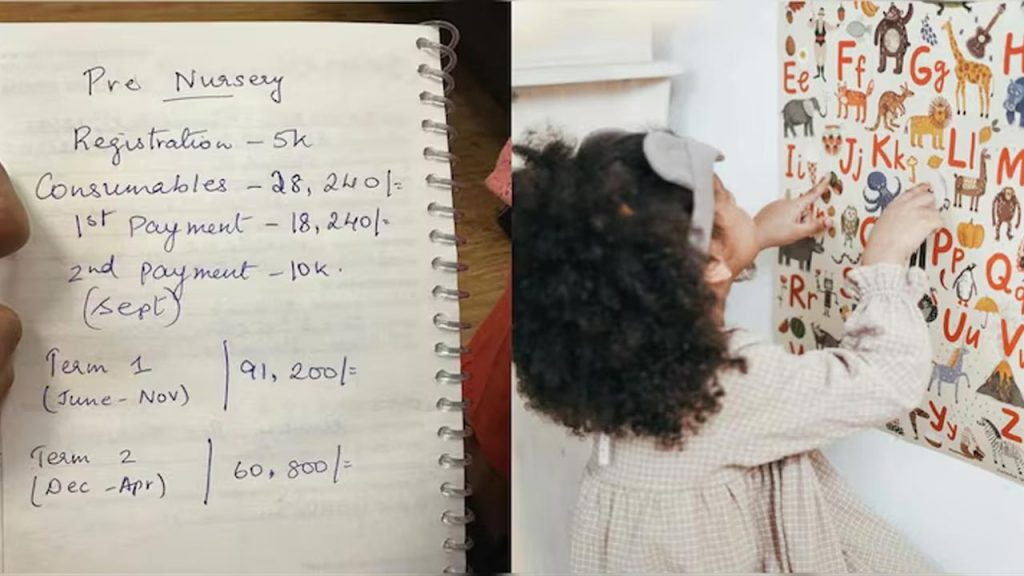 Pre Nursery
Registration - 5k
Consumables - 28, 240/=
1st Payment - 18,240/=
2nd payment - 10k.
(Sept)
Term 1 | 91, 200/=
(June - Nov)
Term 2 | 60, 800/=
(Dec - Apr)
Ee Ff Gg H
Ii Jj Kk Ll M
Pp Q
Rr
Uu V
Yy Z